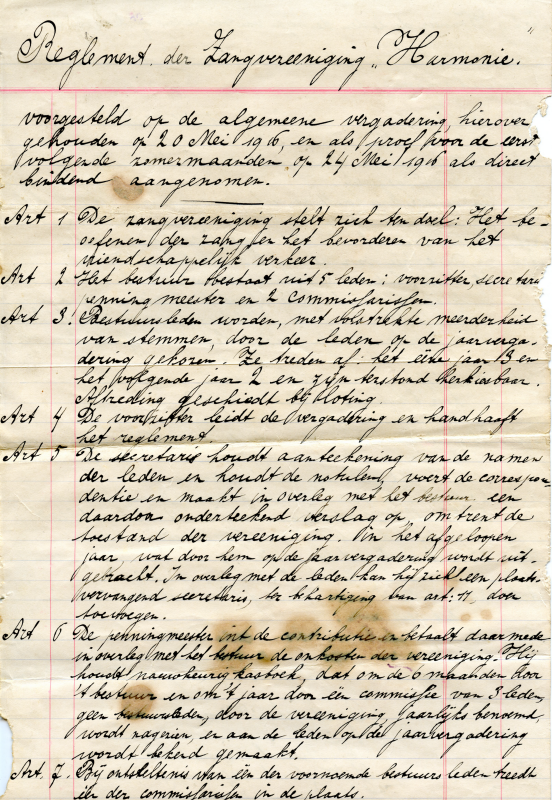 Reglement der Zangvereeniging „Harmonie."
voorgesteld op de algemeene vergadering, hierover
gehouden op 20 Mei 1916, en als proef voor de eerst
volgende zomermaanden op 24 Mei 1916 als direct
bindend aangenomen.
Art 1 De zangvereeniging stelt zich ten doel: Het be-
oefenen der zang en het bevorderen van het
vriendschappelijk verkeer.
Art 2 Het bestuur bestaat uit 5 leden: voorzitter, secretaris
penningmeester en 2 commissarissen.
Art 3. Bestuursleden worden, met volstrekte meerderheid
van stemmen, door de leden op de jaarverga-
dering gekozen. Ze treden af: het eene jaar 3 en
het volgende jaar 2 en zijn terstond herkiesbaar.
Aftreding geschiedt bij loting.
Art 4 De voorzitter leidt de vergadering en handhaaft
het reglement.
Art 5 De secretaris houdt aanteekening van de namen
der leden en houdt de notulen, voert de correspon
dentie en maakt in overleg met het bestuur een
daardoor onderteekend verslag op, omtrent de
toestand der vereeniging in het afgeloopen
jaar, wat door hem op de jaarvergadering wordt uit-
gebracht. In overleg met de leden kan hij zich een plaats-
vervangend secretaris, ter behartiging van art: 11, doen
toevoegen.
Art 6 De penningmeester int de contributie en betaalt daarmede
in overleg met het bestuur de onkosten der vereeniging. Hij
houdt nauwkeurig kasboek, dat om de 6 maanden door
't bestuur en om 't jaar door een commissie van 3 leden,
geen bestuursleden, door de vereeniging, jaarlijks benoemd,
wordt nagezien, en aan de leden op de jaarvergadering
wordt bekend gemaakt.
Art. 7. Bij ontstentenis van één der voornoemde bestuursleden treedt
één der commissarissen in de plaats.